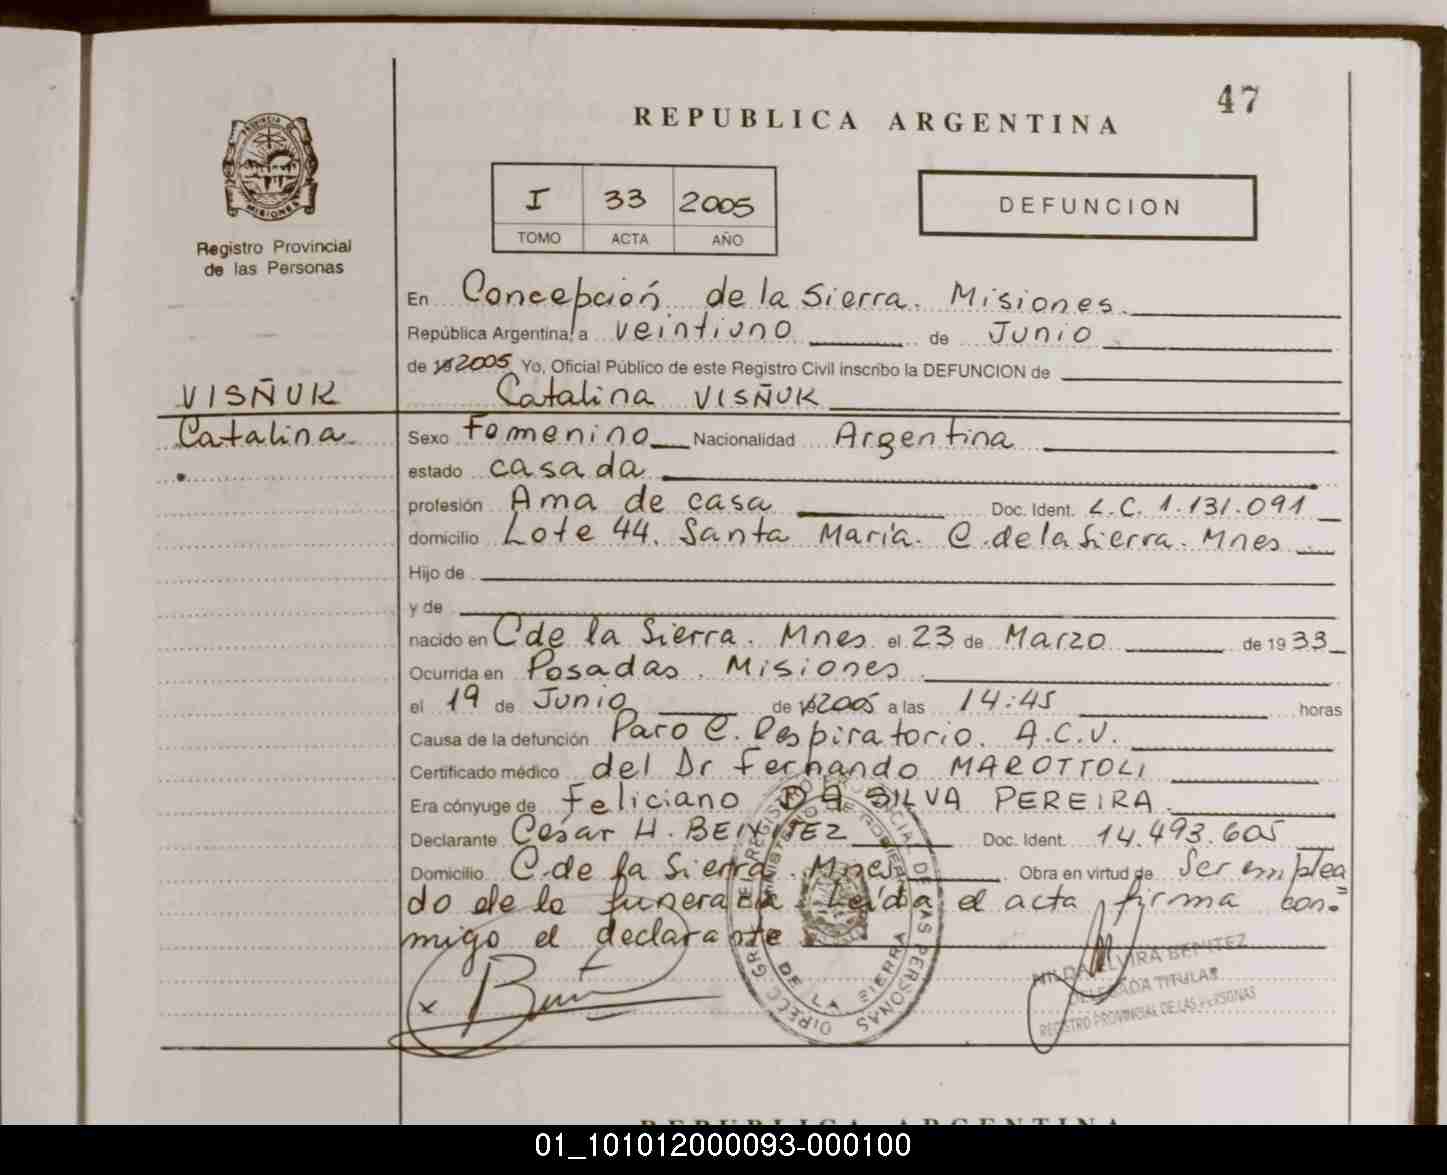 47
REPUBLICA ARGENTINA
PROVINCIA DE
MISIONES
Registro Provincial
de las Personas
I 33 2005
TOMO ACTA AÑO
DEFUNCION
En Concepción de la Sierra. Misiones.
República Argentina, a veintiuno de Junio
de 2005 Yo, Oficial Público de este Registro Civil inscribo la DEFUNCION de
VISÑUK
Catalina VISÑUK
Catalina
Sexo Femenino Nacionalidad Argentina
estado casada
profesión Ama de casa Doc. Ident. L.C. 1.131.091
domicilio Lote 44. Santa María. C. de la Sierra. Mnes
Hijo de
y de
nacido en C de la Sierra. Mnes. el 23 de Marzo de 1933
Ocurrida en Posadas. Misiones
el 19 de Junio de 2005 a las 14:45 horas
Causa de la defunción Paro C. Respiratorio. A.C.V.
Certificado médico del Dr Fernando MAROTTOLI
Era cónyuge de Feliciano DA SILVA PEREIRA
Declarante César H. BENITEZ Doc. Ident. 14.493.605
Domicilio C. de la Sierra. Mnes Obra en virtud de Ser emplea
do de la funeraria. Leída el acta firma con=
migo el declarante
x
DE LA SIERRA
DE LAS PERSONAS
NILDA ELVIRA BENITEZ
DELEGADA TITULAR
REGISTRO PROVINCIAL DE LAS PERSONAS
REPUBLICA ARGENTINA
01_101012000093-000100